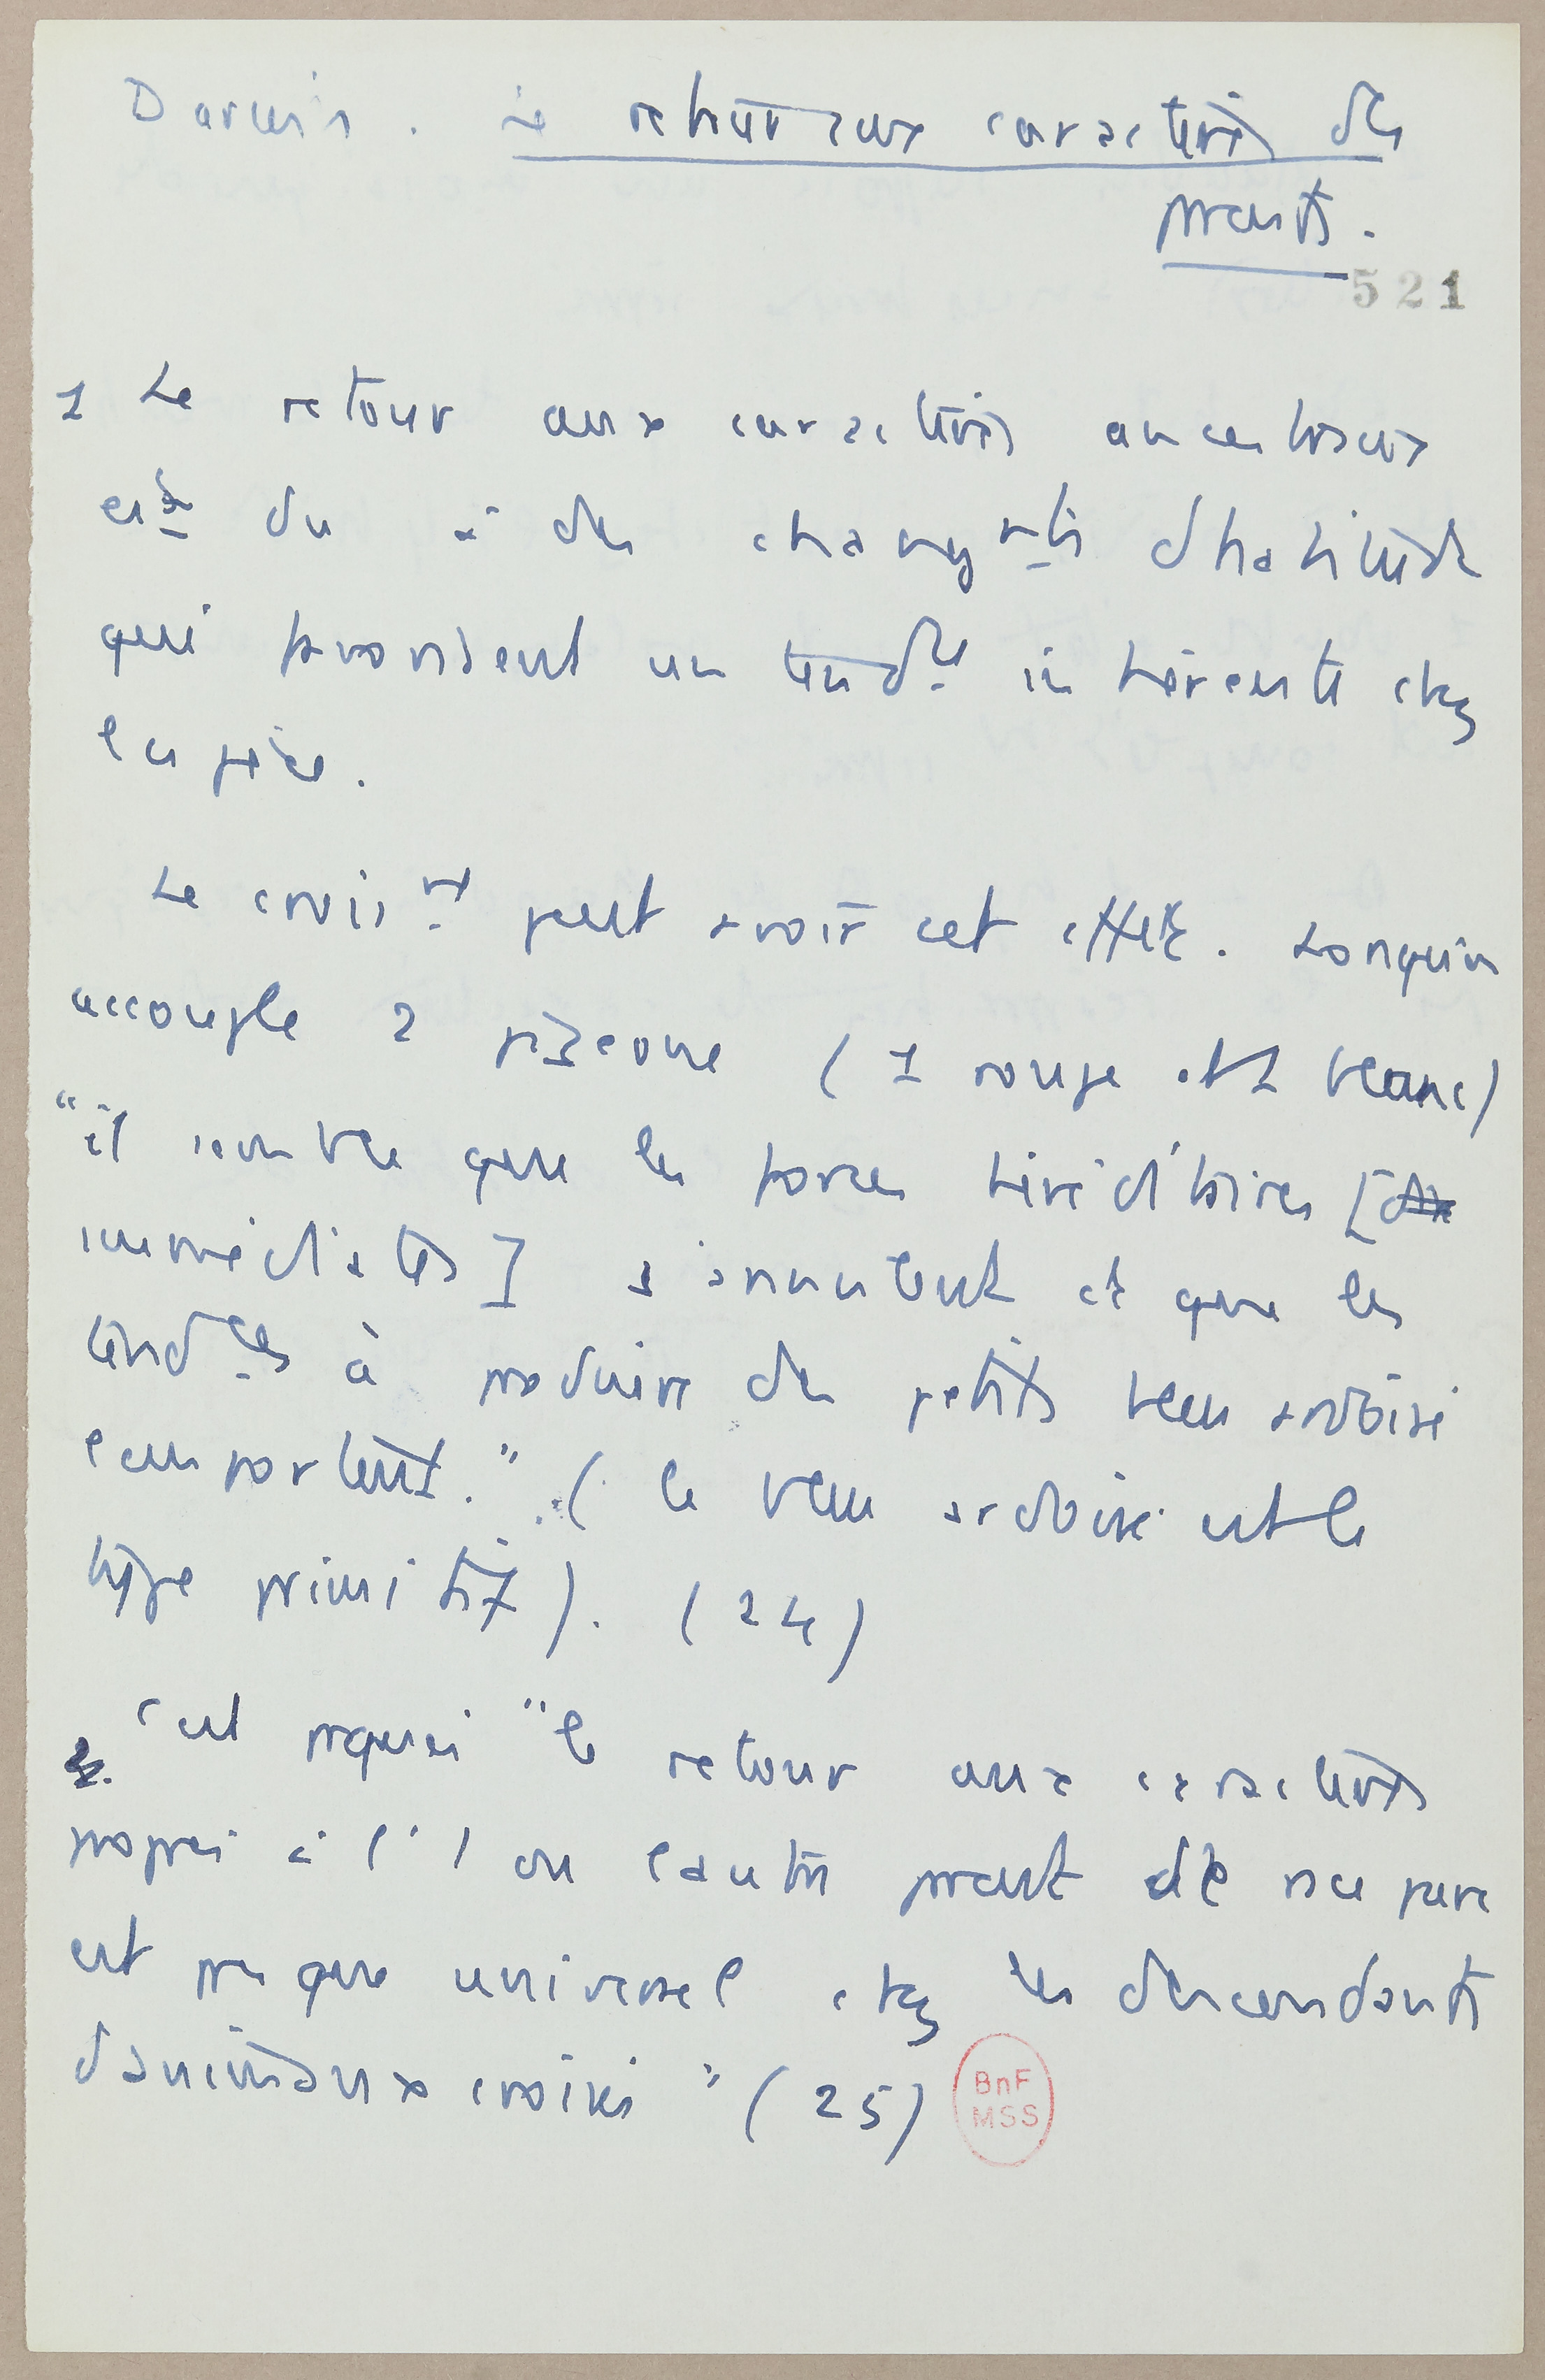 Darwin. Le retour aux caractères des
parents.
521
1 Le retour aux caractères ancestraux
est du à des changmts d'habitude
qui favorisent une tendce inhérente chez
l'espèce.
Le croismt peut avoir cet effet. Lorsqu'on
accouple 2 pigeons (1 rouge et 1 blanc)
"il semble que les forces héréditaires [
immédiates] s'annulent et que les
tendces à produire des petits bleu ardoisé
l'emportent." (le bleu ardoisé est le
type primitif). (24)
2. C'est pquoi "le retour aux caractères
propres à l'1 ou l'autre parent de race pure
est presque universel chez les descendants
d'animaux croisés" (25)
BnF
MSS